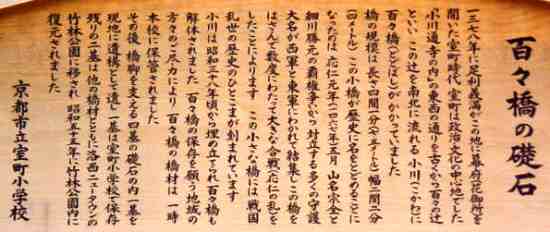 百々橋の礎石
一三七八年に足利義満がこの地に幕府(花御所)を
開いた室町時代、室町は政治文化の中心地でした
小川通寺の内の東西の通りを古くから百々の辻
といい この辻を南北に流れる小川(こかわ)に
百々橋(どどばし)がかかっていました
橋の規模は 長さ四間一分(七・五メートル)幅二間二分
(四メートル) この小橋が歴史に名をとどめることに
なったのは 応仁元年(一四六七)五月 山名宗全と
細川勝元の覇権争いから 対立する多くの守護
大名が西軍と東軍にわかれて結集し この橋を
はさんで数度にわたって大きな合戦(応仁の乱)を
したことによります この小さな橋には戦国
乱世の歴史のひとこまが刻まれています
小川は昭和三十八年頃から埋め立てられ 百々橋も
解体されました 百々橋の保存を願う地域の
方々のご尽力により 百々橋の橋材は 一時
本校に保管されました
その後 橋脚を支える四基の礎石の内 一基を
現地に遺構として遺し 一基は室町小学校で保存
残りの二基は 他の橋材とともに洛西ニュータウンの
竹林公園に移され 昭和五十五年に竹林公園内に
復元されました
京都市立室町小学校